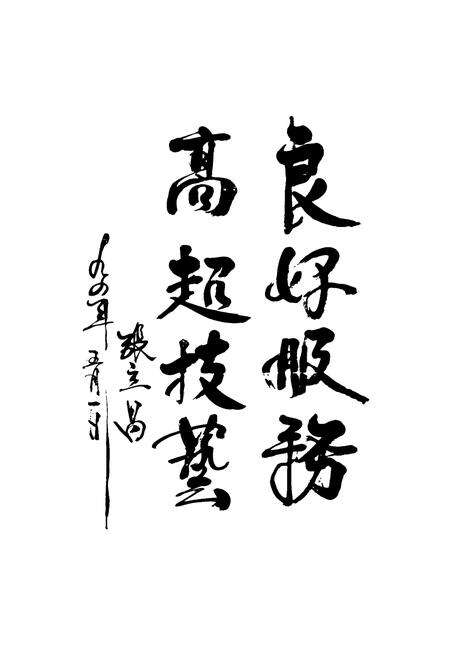 良好服務
高超技藝
張立昌
九四年五月一日